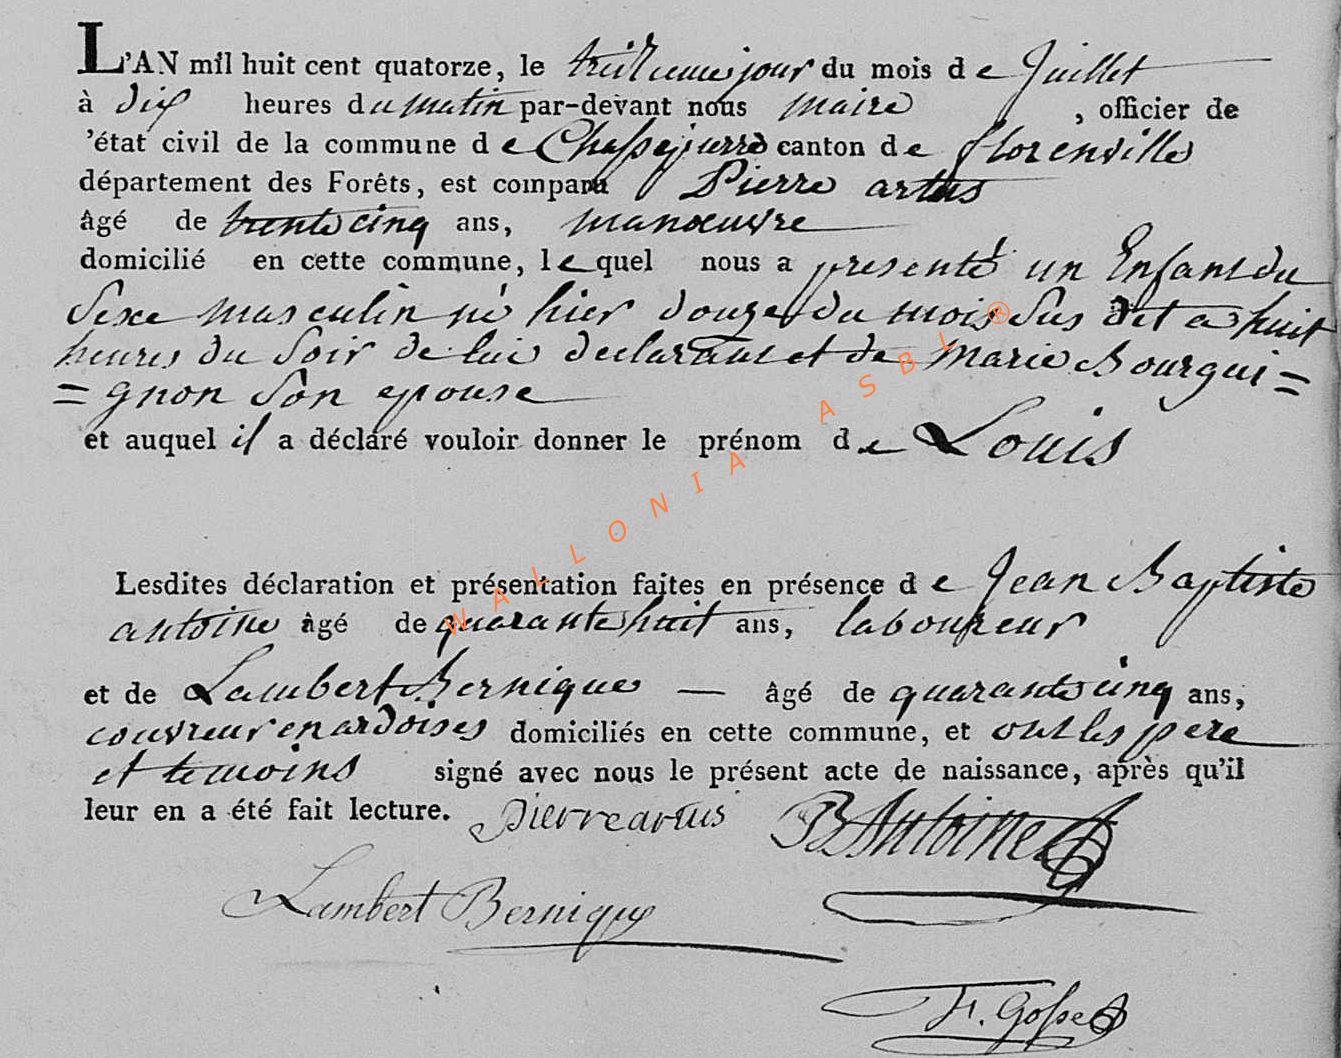 L'AN mil huit cent quatorze, le treizieme jour du mois de Juillet
à dix heures du matin par-devant nous maire , officier de
'état civil de la commune de Chassepierre canton de florenville
département des Forêts, est comparu Pierre artus
âgé de trente cinq ans, manœuvre
domicilié en cette commune, lequel nous a presenté un Enfant du
Sexe masculin né hier douze du mois Sus dit a huit
heures du Soir de lui declarant et de Marie Bourgui=
=gnon Son epouse
et auquel il a déclaré vouloir donner le prénom de Louis
WALLONIA ASBL ®
Lesdites déclaration et présentation faites en présence de Jean Baptiste
antoine âgé de quarante huit ans, laboureur
et de Lambert Bernique — âgé de quarante cinq ans,
couvreur en ardoises domiciliés en cette commune, et ont les pere
et temoins signé avec nous le présent acte de naissance, après qu'il
leur en a été fait lecture. Pierre artus B Antoine
Lambert Bernique
F. Gosse